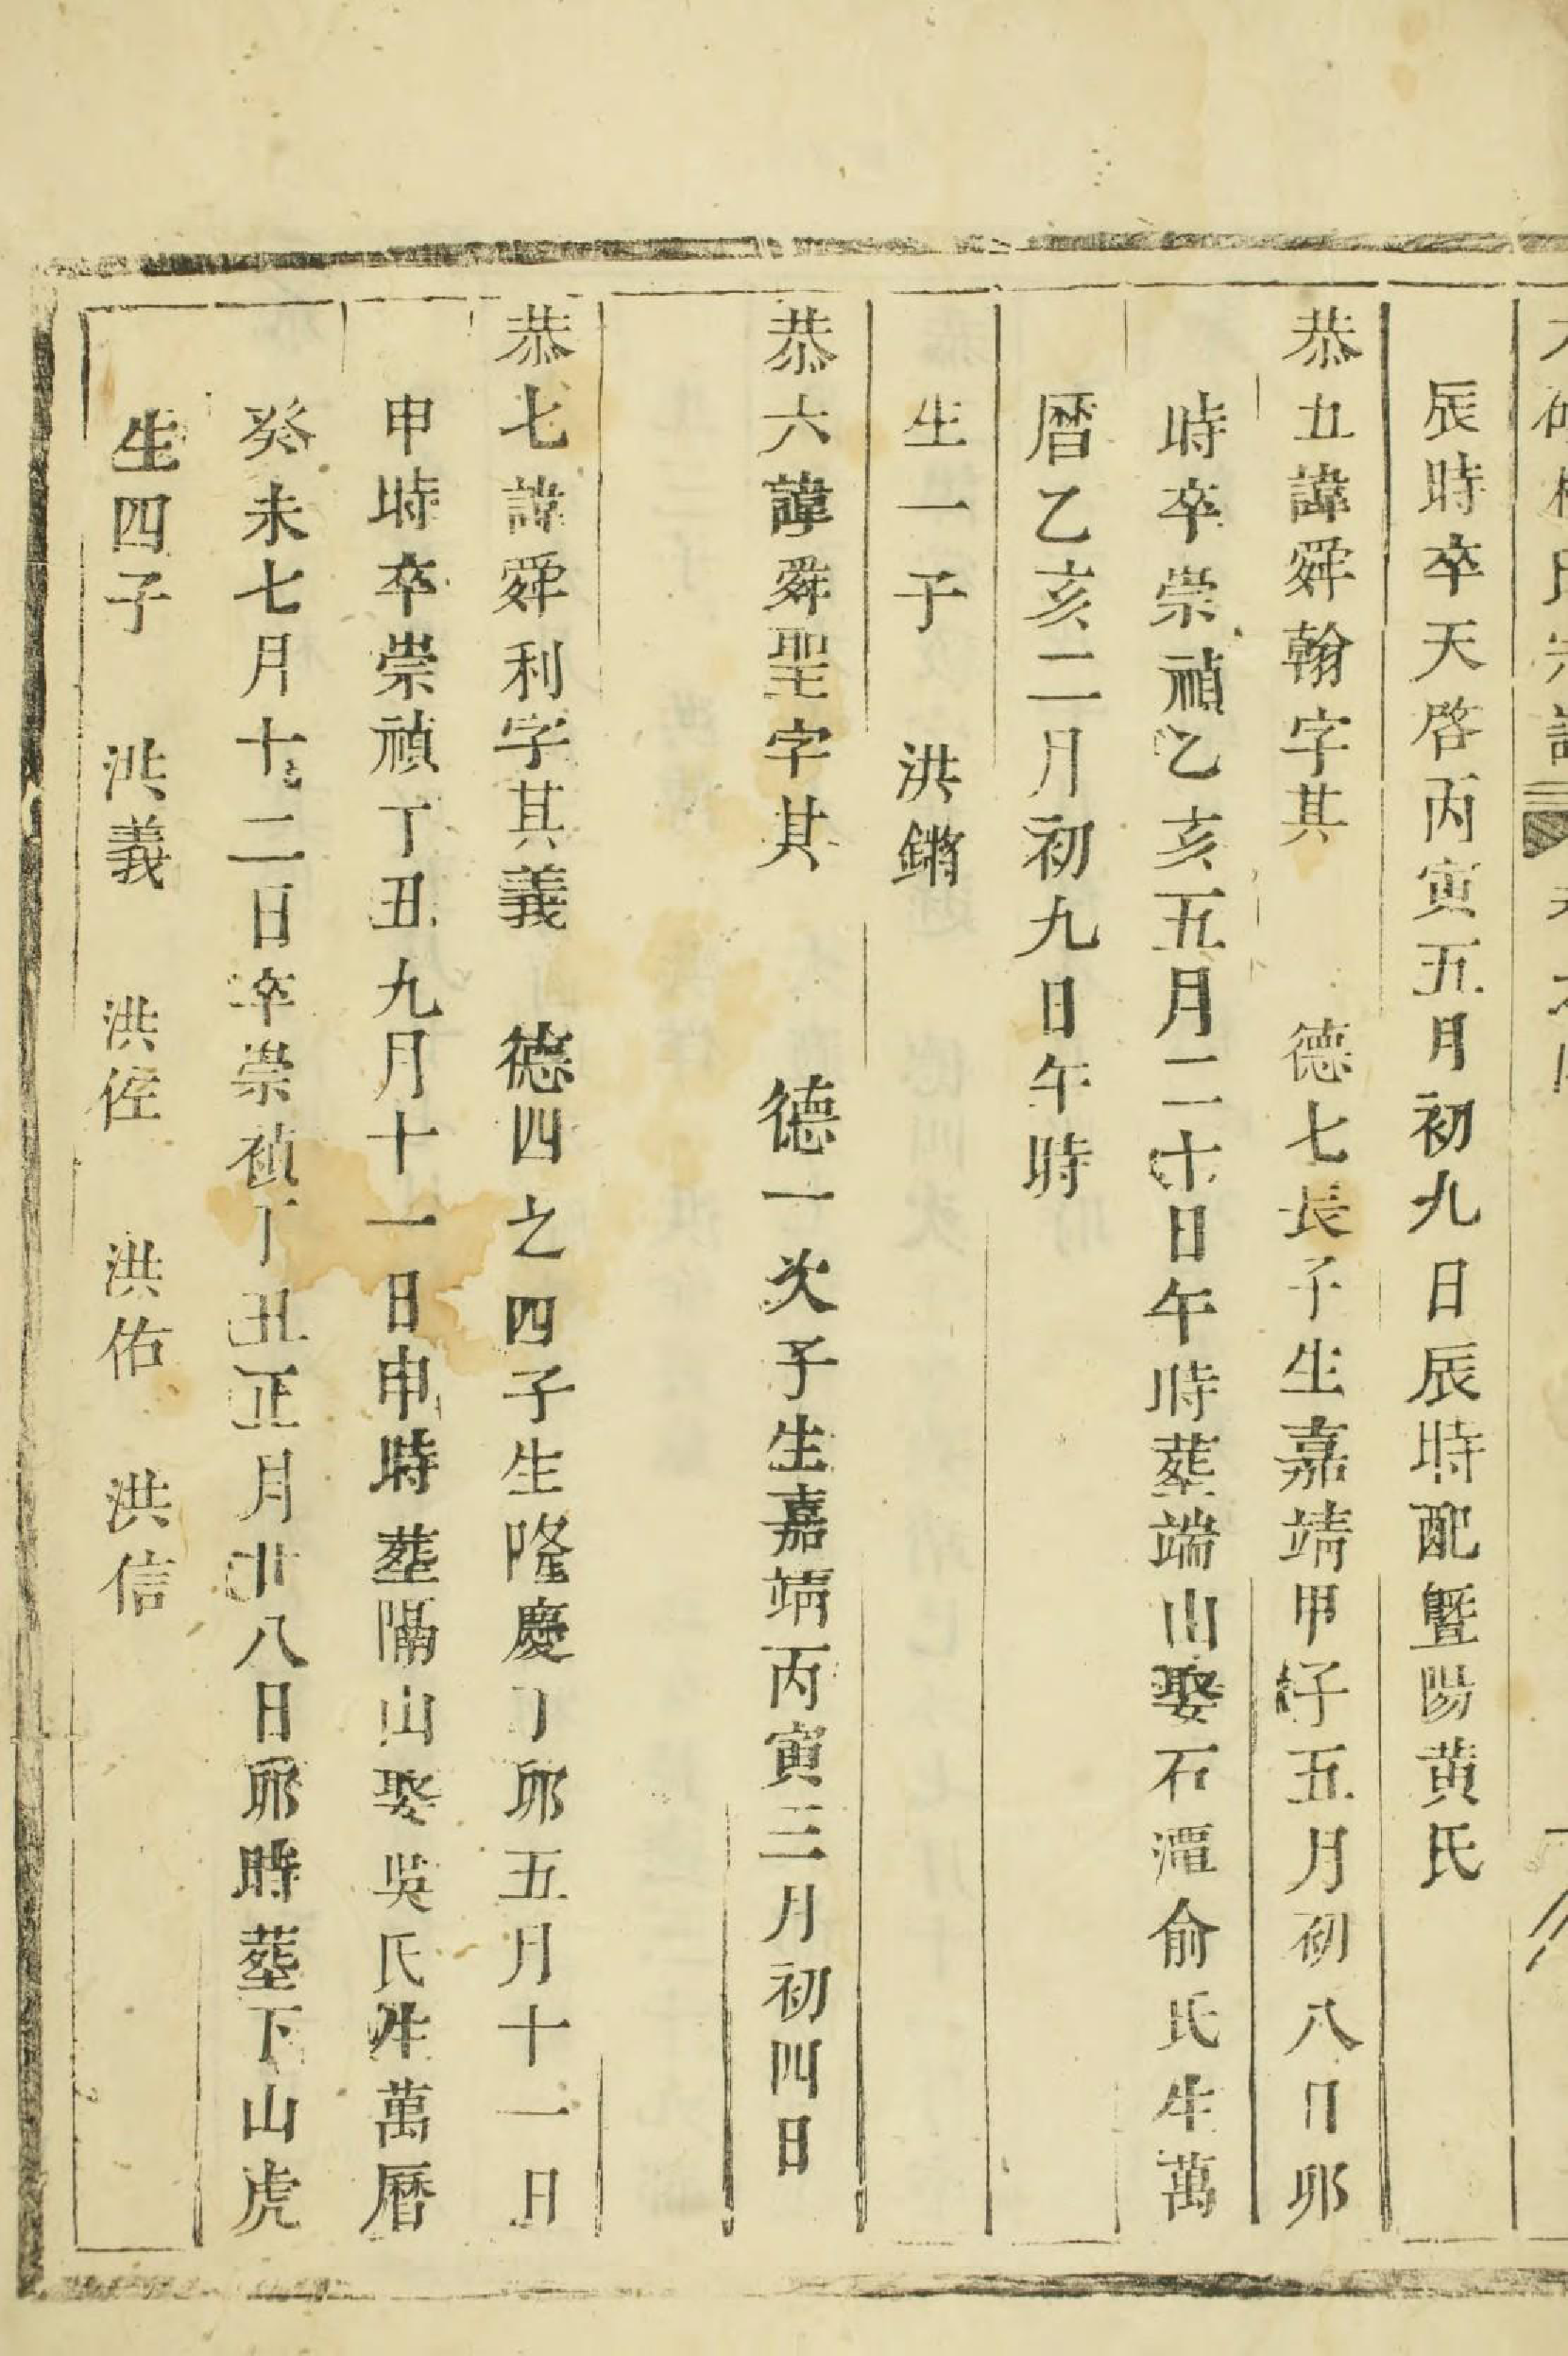 辰時卒天啓丙寅五月初九日辰時配曁陽黄氏
恭五諱舜翰字其　德七長子生嘉靖甲子五月初八日夘
時卒崇禎乙亥五月二十日午時塟端山娶石潭俞氏生萬
曆乙亥二月初九日午時
生一子　洪鏘
恭六諱舜聖字其　德一次子生嘉靖丙寅三月初四日
恭七諱舜利字其義　德四之四子生隆慶丁夘五月十一日
申時卒崇禎丁丑九月十一日申時塟隔山娶吳氏生萬曆
癸未七月十二日卒崇禎丁丑正月廿八日夘時塟下山虎
生四子　洪義　洪佐　洪佑　洪信